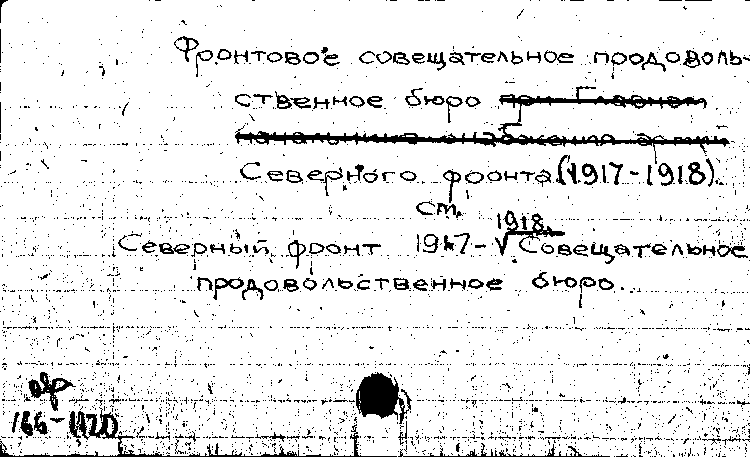 Фронтовое совещательное продоволь-
ственное бюро при Главном
начальнике снабжения армий
Северного фронта (1917-1918).
ст. 1918.
Северный фронт 1917- Совещательное
продовольственное бюро.
166-1120